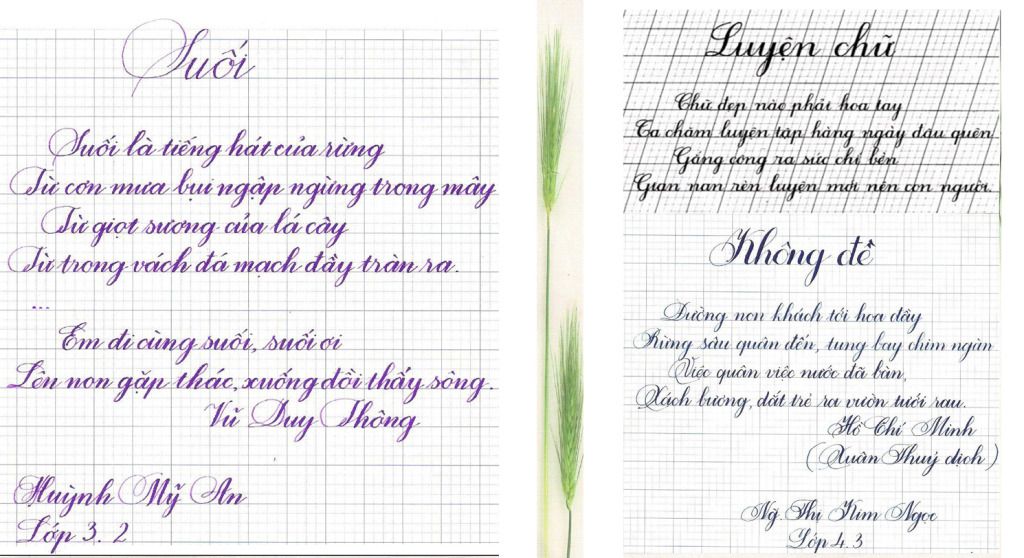 Suối
Suối là tiếng hát của rừng
Từ cơn mưa bụi ngập ngừng trong mây
Từ giọt sương của lá cây
Từ trong vách đá mạch đầy tràn ra.
...
Em đi cùng suối, suối ơi
Lên non gặp thác, xuống đồi thấy sông.
Vũ Duy Thông
Huỳnh Mỹ An
Lớp 3.2
Luyện chữ
Chữ đẹp nào phải hoa tay
Ta chăm luyện tập hàng ngày đâu quên
Gắng công ra sức chí bền
Gian nan rèn luyện mới nên con người.
Không đề
Đường non khách tới hoa đầy
Rừng sâu quân đến, tung bay chim ngàn
Việc quân việc nước đã bàn,
Xách bương, dắt trẻ ra vườn tưới rau.
Hồ Chí Minh
(Xuân Thuỷ dịch)
Ng̃. Thị Kim Ngọc
Lớp 4.3